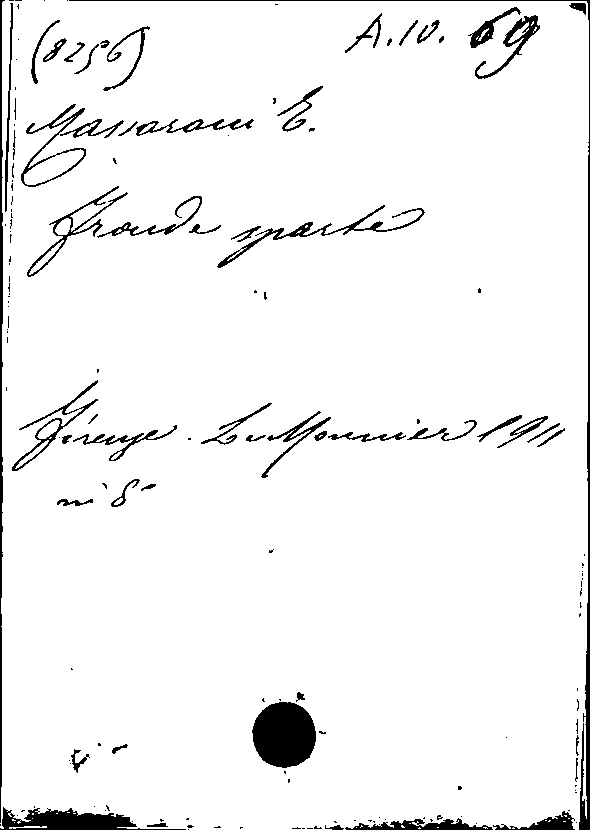 (8256)
A.10. 69
Massarani E.
Fronde sparte
Firenze. Le Monnier 1911
in 8º